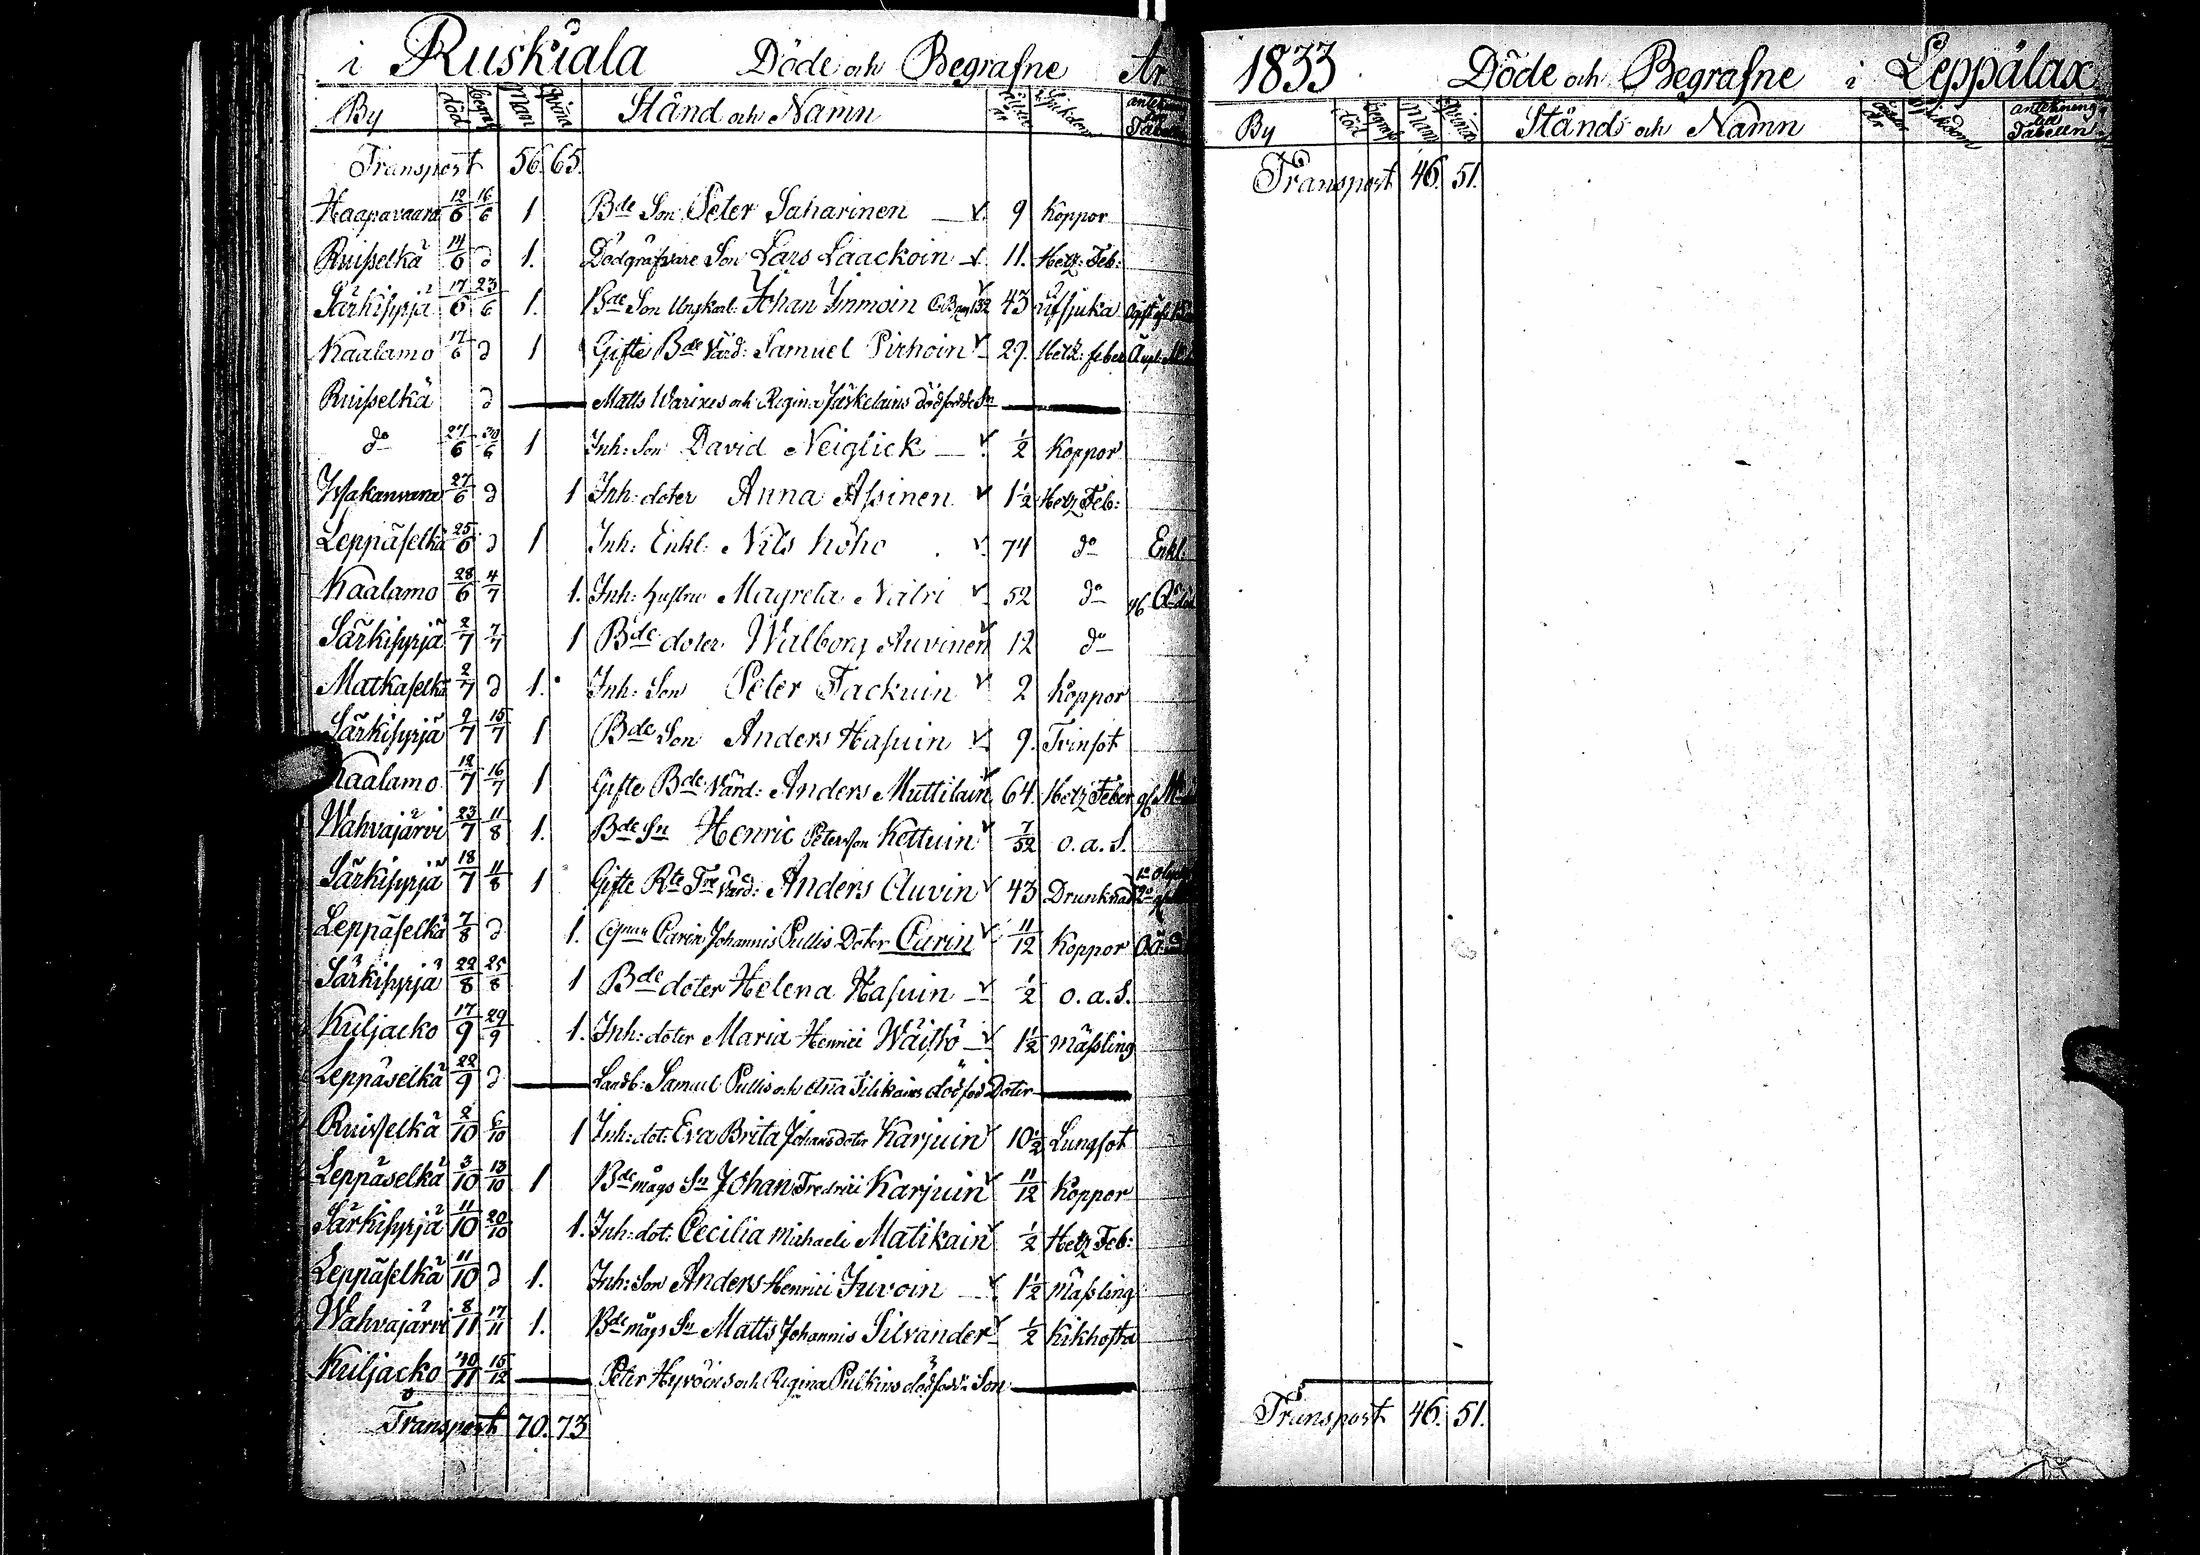 i Ruskiala Döde och Begrafne År
By död begr: Man Qvin Stånd och Namn Ålder år Sjukdom
Transport 56. 65.
Haapavaara 12/6 16/6 1 Bde Son Peter Saharinen 9 Koppor
Ruisselkä 14/6 d 1. Dödgräfvare Son Lars Laackoin 11. Hetz: Feb:
Särkisyrjä 17/6 23/6 1. Bde Son Ungkarl: Johan Immoin 43
Kaalamo 17/6 d 1 Gifte Bde Värd: Samuel Pirhoin 29. Hetz: feber
Ruisselkä d Matts Warixes och Regina Jäskelains dödfödde Sn
do 27/6 30/6 1 Inh: Son David Neiglick 1/2 Koppor
27/6 d 1 Inh: doter Anna Assinen 1 1/2 Hetz Feb:
Leppäselkä 25/6 d 1 Inh: Enkl: Nils Koho 74 do Enkl:
Kaalamo 28/6 4/7 1. Inh: hustru Magreta Nätri 52 do
Särkisyrjä 2/7 7/7 1 Bde doter Walborg Auvinen 12 do
Matkaselkä 2/7 d 1. Inh: Son Peter Tackuin 2 Koppor
Särkisyrjä 9/7 15/7 1 Bde Son Anders Hasuin 9. Tvinsot
Kaalamo 12/7 16/7 1 Gifte Bde Värd: Anders Muttilain 64. Hetz Feber
Wahvajärvi 23/7 11/8 1. Bde Sn Henric Petersson Kettuin 7/52 o. a. S.
Särkisyrjä 18/7 11/8 1 Gifte Rte Värd: Anders Auvin 43 Drunknad
Leppäselkä 7/8 d 1. Carin Johannis Pullis Doter Carin 11/12 Koppor
Särkisyrjä 22/8 25/8 1 Bde doter Helena Hasuin 1/2 o. a. S.
Kuljacko 17/9 29/9 1. Inh: doter Maria Henrici Wäistö 1 1/2 mässling
Leppäselkä 22/9 d Landb: Samuel Pullis och Anna Silikains dödfod Doter
Ruisselkä 2/10 6/10 1 Inh: dot: Eva Brita Johansdoter Karjuin 10 1/2 Lungsot
Leppäselkä 3/10 13/10 1 Bde mågs Sn Johan Fredrici Karjuin 11/12 Koppor
Särkisyrjä 11/10 20/10 1. Inh: dot: Cecilia Michaeli Matikain 1/2 Hetz Feb:
Leppäselkä 11/10 d 1. Inh: Son Anders Henrici Juvoin 1 1/2 mässling
Wahvajärvi 8/11 17/11 1. Bde mågs Sn Matts Johannis Silvander 1/2 Kikhosta
Kuljacko 15/12 Peter Hyvöins och Regina Pulkins dödfödde Son
Transport 70. 73
1833 Döde och Begrafne i Leppälax
By död begraf Mann Qvinn Stånds och Namn Ålder år Sjukdom anteckning till Tabellen
Transport 46. 51.
Transport 46. 51.